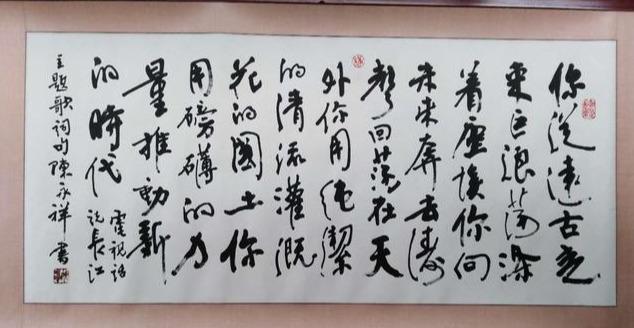 你從遠古走
来巨浪蕩滌
着塵埃你向
未来奔去濤
聲回蕩在天
外你用純潔
的清流灌溉
花的國土你
用磅礴的力
量推動新
的時代
電視話
説長江
主題歌詞句陳永祥書